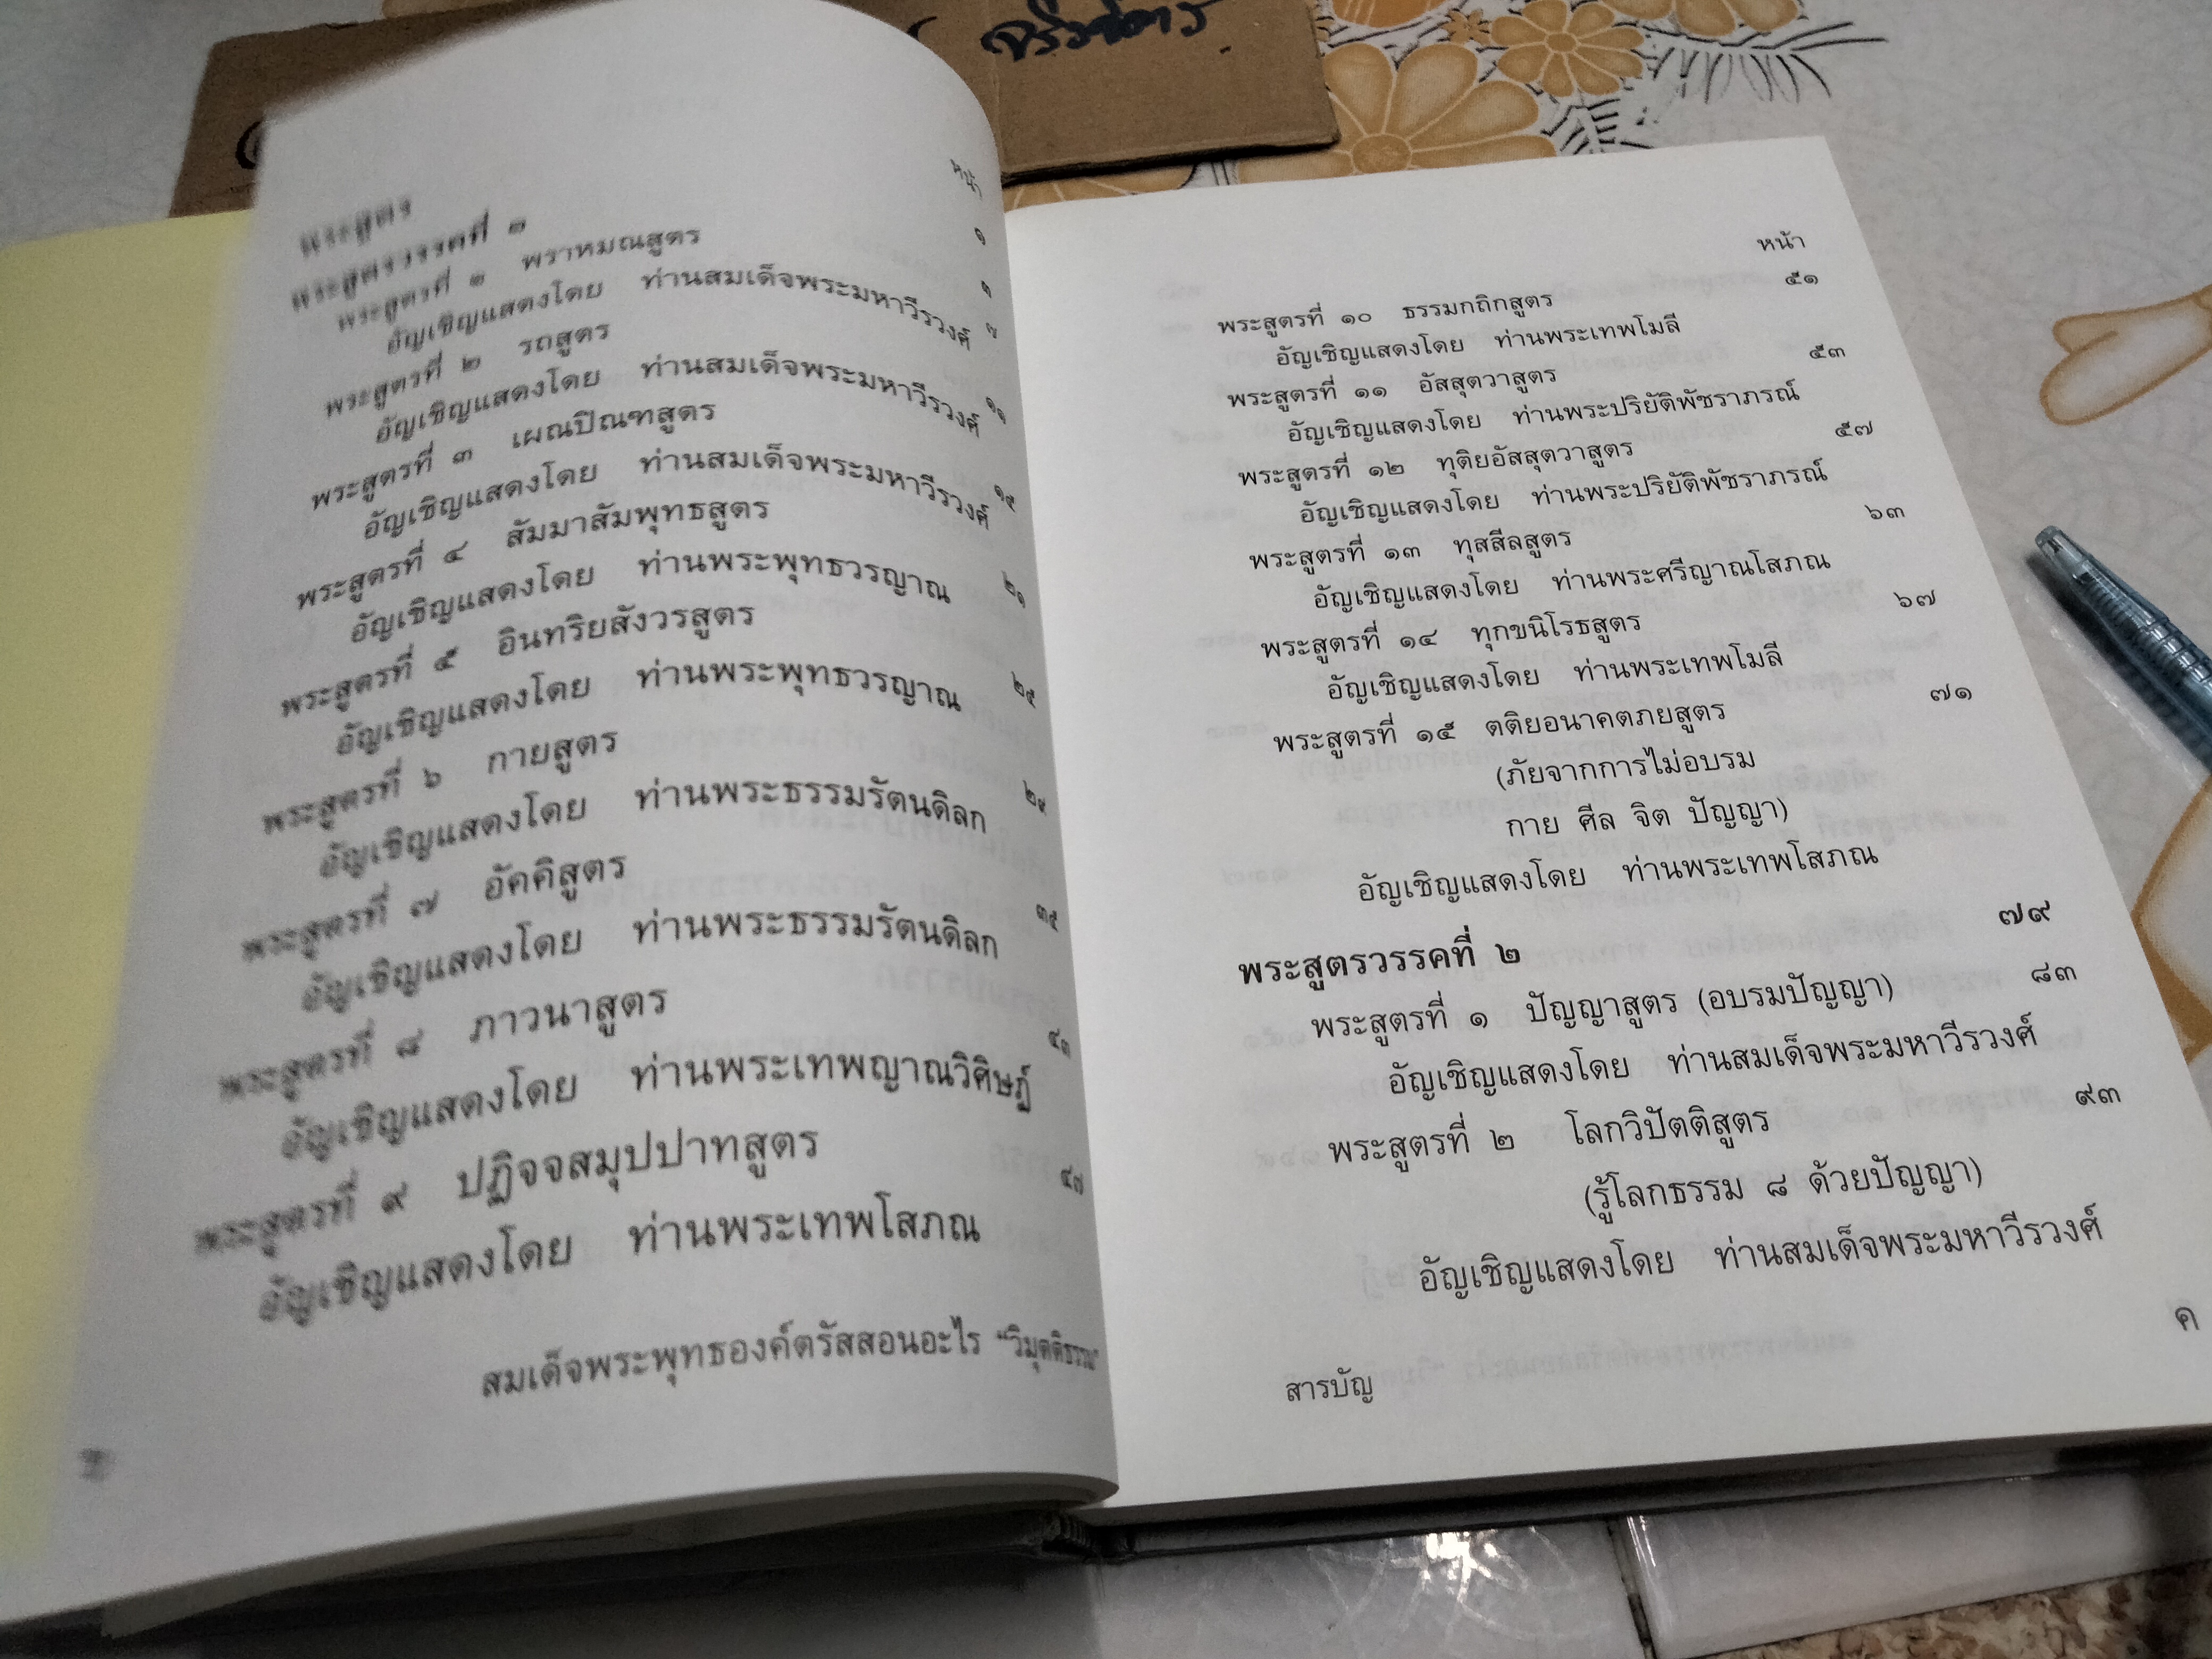 หน้า
พระสูตร ๑
พระสูตรวรรคที่ ๑ ๓
พระสูตรที่ ๑ พราหมณสูตร ๗
อัญเชิญแสดงโดย ท่านสมเด็จพระมหาวีรวงศ์
พระสูตรที่ ๒ รถสูตร ๑๑
อัญเชิญแสดงโดย ท่านสมเด็จพระมหาวีรวงศ์
พระสูตรที่ ๓ เผณปิณฑสูตร ๑๕
อัญเชิญแสดงโดย ท่านสมเด็จพระมหาวีรวงศ์
พระสูตรที่ ๔ สัมมาสัมพุทธสูตร ๒๑
อัญเชิญแสดงโดย ท่านพระพุทธวรญาณ
พระสูตรที่ ๕ อินทริยสังวรสูตร ๒๕
อัญเชิญแสดงโดย ท่านพระพุทธวรญาณ
พระสูตรที่ ๖ กายสูตร ๒๙
อัญเชิญแสดงโดย ท่านพระธรรมรัตนดิลก
พระสูตรที่ ๗ อัคคิสูตร ๓๕
อัญเชิญแสดงโดย ท่านพระธรรมรัตนดิลก
พระสูตรที่ ๘ ภาวนาสูตร ๔๓
อัญเชิญแสดงโดย ท่านพระเทพญาณวิศิษฏ์
พระสูตรที่ ๙ ปฏิจจสมุปปาทสูตร ๔๗
อัญเชิญแสดงโดย ท่านพระเทพโสภณ
สมเด็จพระพุทธองค์ตรัสสอนอะไร "วิมุตติธรรม"
หน้า
พระสูตรที่ ๑๐ ธรรมกถิกสูตร ๕๑
อัญเชิญแสดงโดย ท่านพระเทพโมลี
พระสูตรที่ ๑๑ อัสสุตวาสูตร ๕๓
อัญเชิญแสดงโดย ท่านพระปริยัติพัชราภรณ์
พระสูตรที่ ๑๒ ทุติยอัสสุตวาสูตร ๕๗
อัญเชิญแสดงโดย ท่านพระปริยัติพัชราภรณ์
พระสูตรที่ ๑๓ ทุสสีลสูตร ๖๓
อัญเชิญแสดงโดย ท่านพระศรีญาณโสภณ
พระสูตรที่ ๑๔ ทุกขนิโรธสูตร ๖๗
อัญเชิญแสดงโดย ท่านพระเทพโมลี
พระสูตรที่ ๑๕ ตติยอนาคตภยสูตร ๗๑
(ภัยจากการไม่อบรม
กาย ศีล จิต ปัญญา)
อัญเชิญแสดงโดย ท่านพระเทพโสภณ
พระสูตรวรรคที่ ๒ ๗๙
พระสูตรที่ ๑ ปัญญาสูตร (อบรมปัญญา) ๘๓
อัญเชิญแสดงโดย ท่านสมเด็จพระมหาวีรวงศ์
พระสูตรที่ ๒ โลกวิปัตติสูตร ๙๓
(รู้โลกธรรม ๘ ด้วยปัญญา)
อัญเชิญแสดงโดย ท่านสมเด็จพระมหาวีรวงศ์
สารบัญ ค